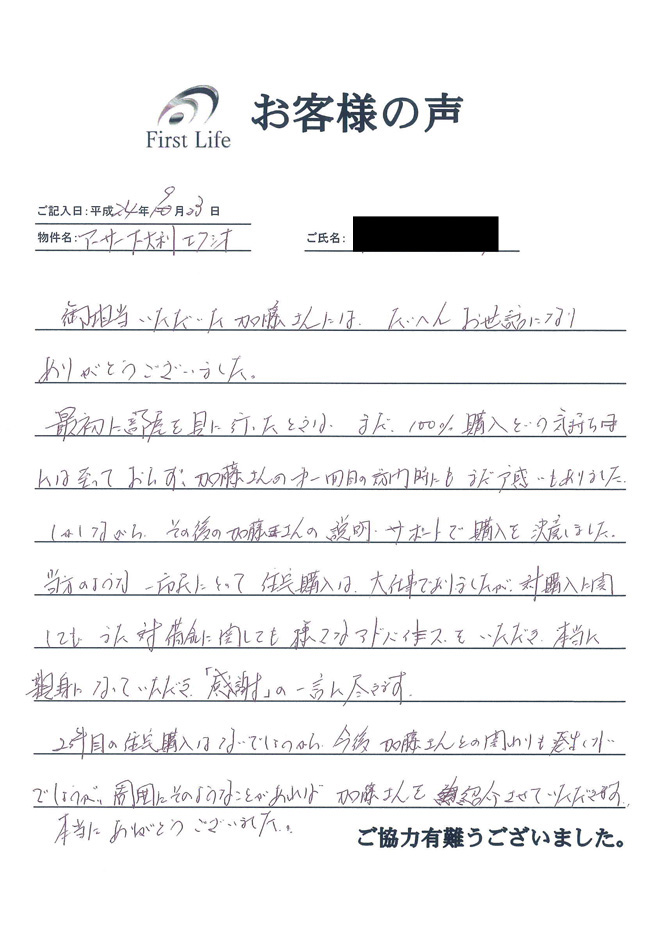 First Life
お客様の声
ご記入日:平成24年9月23日
物件名:アーサー下大利エクシオ
ご氏名:
御担当いただいた加藤さんには、たいへんお世話になり
ありがとうございました。
最初に部屋を見に行ったときは、まだ、100%購入という気持ち
には至っておらず、加藤さんの第一回目の訪問時にもまだ戸惑いもありました。
しかしながら、その後の加藤さんの説明・サポートで購入を決意しました。
当方のような一市民にとって住宅購入は、大仕事でありましたが、対購入に関
しても、また対借金に関しても様々なアドバイスをいただき、本当に
親身になっていただき、「感謝」の一言に尽きます。
2軒目の住宅購入はないでしょうから、今後加藤さんとの関わりも発生しない
でしょうが、周囲にそのようなことがあれば加藤さんを紹介させていただきます。
本当にありがとうございました。
ご協力有難うございました。